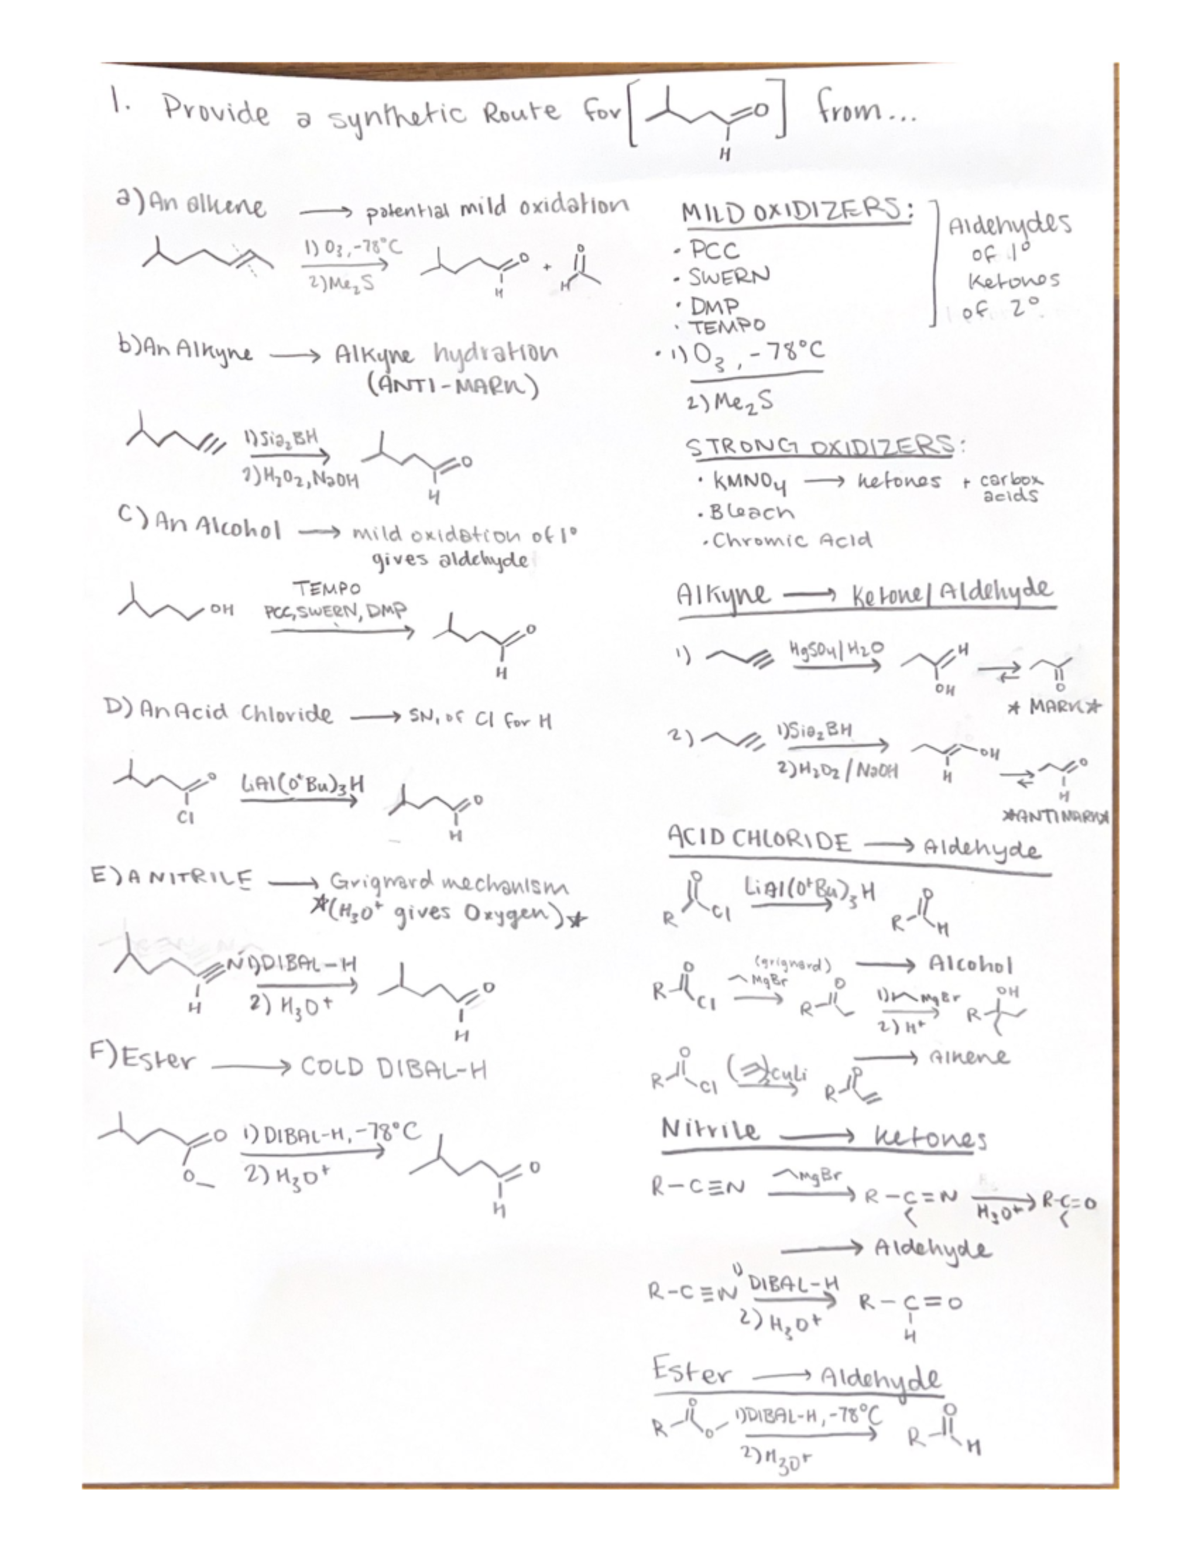 1. Provide a synthetic Route for [ O H ] from...
a) An alkene ⟶ potential mild oxidation
1) O3, -78°C
2) Me2S
O H + O H
b) An Alkyne ⟶ Alkyne hydration
(ANTI-MARK)
1) Sia2BH
2) H2O2, NaOH
O H
C) An Alcohol ⟶ mild oxidation of 1°
gives aldehyde
OH
TEMPO
PCC, SWERN, DMP
O H
D) An Acid Chloride ⟶ SN, of Cl for H
O Cl
LiAl(OtBu)3H
O H
E) A NITRILE ⟶ Grignard mechanism
*(H3O+ gives Oxygen)*
N H
1) DIBAL-H
2) H3O+
O H
F) Ester ⟶ COLD DIBAL-H
O O
1) DIBAL-H, -78°C
2) H3O+
O H
MILD OXIDIZERS:
• PCC
• SWERN
• DMP
• TEMPO
• 1) O3, -78°C
2) Me2S
Aldehydes
of 1°
Ketones
of 2°
STRONG OXIDIZERS:
• KMNO4 ⟶ ketones + carbox
acids
• Bleach
• Chromic Acid
Alkyne ⟶ Ketone/Aldehyde
1) HgSO4/H2O H OH ⇌ O
* MARK*
2) 1) Sia2BH
2) H2O2/NaOH
OH H ⇌ O H
*ANTIMARK*
ACID CHLORIDE ⟶ Aldehyde
R O Cl LiAl(OtBu)3H R O H
(grignard) ⟶ Alcohol
R O Cl MgBr R O 1) MgBr R OH
2) H+
⟶ Alkene
R O Cl ( )2CuLi R O
Nitrile ⟶ ketones
R-C≡N MgBr R-C=N H3O+ R-C=O
⟶ Aldehyde
R-C≡N 1) DIBAL-H R-C=O
2) H3O+ H
Ester ⟶ Aldehyde
R O O 1) DIBAL-H, -78°C R O H
2) H3O+